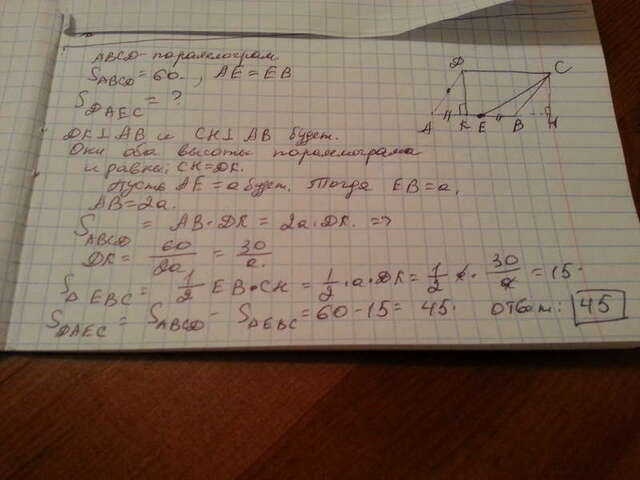 ABCD - параллелограм
S ABCD = 60. , AE = EB
S DAEC = ?
DK⊥AB и CH⊥AB будет.
Они оба высоты паралелограма
и равны; CH=DK.
Пусть AE = a будет. Тогда EB = a,
AB = 2a.
S ABCD = AB·DK = 2a·DK. =>
DK = 60/2a = 30/a.
S Δ EBC = 1/2 EB·CH = 1/2·a·DK = 1/2 a · 30/a = 15.
S DAEC = S ABCD - S ΔEBC = 60-15 = 45. ответ: 45
D C
A K E B H